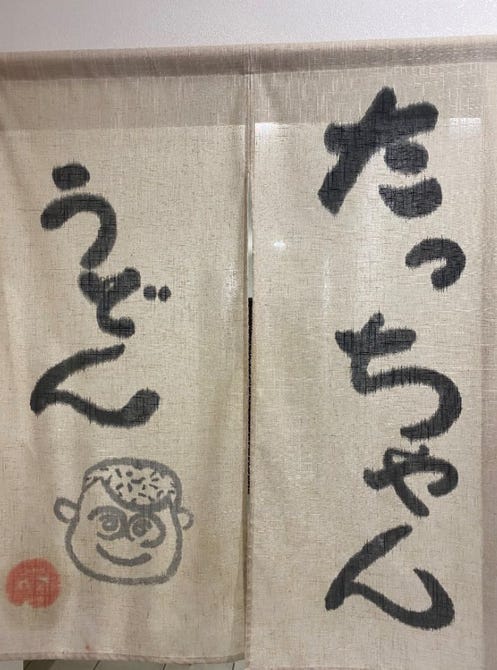 たっちゃん
うどん